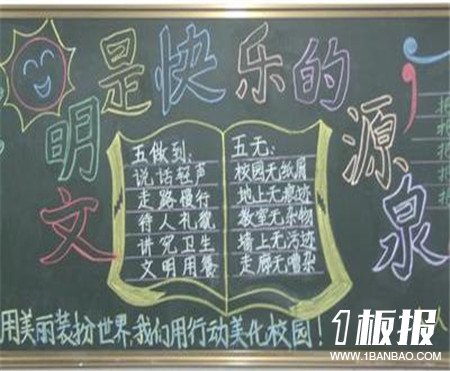 文明是快乐的源泉
五做到:
说话轻声
走路慢行
待人礼貌
讲究卫生
文明用餐
五无:
校园无纸屑
地上无痕迹
教室无杂物
墙上无污迹
走廊无嘈杂
用美丽装扮世界,我们用行动美化校园!
1板报
WWW.1BANBAO.COM